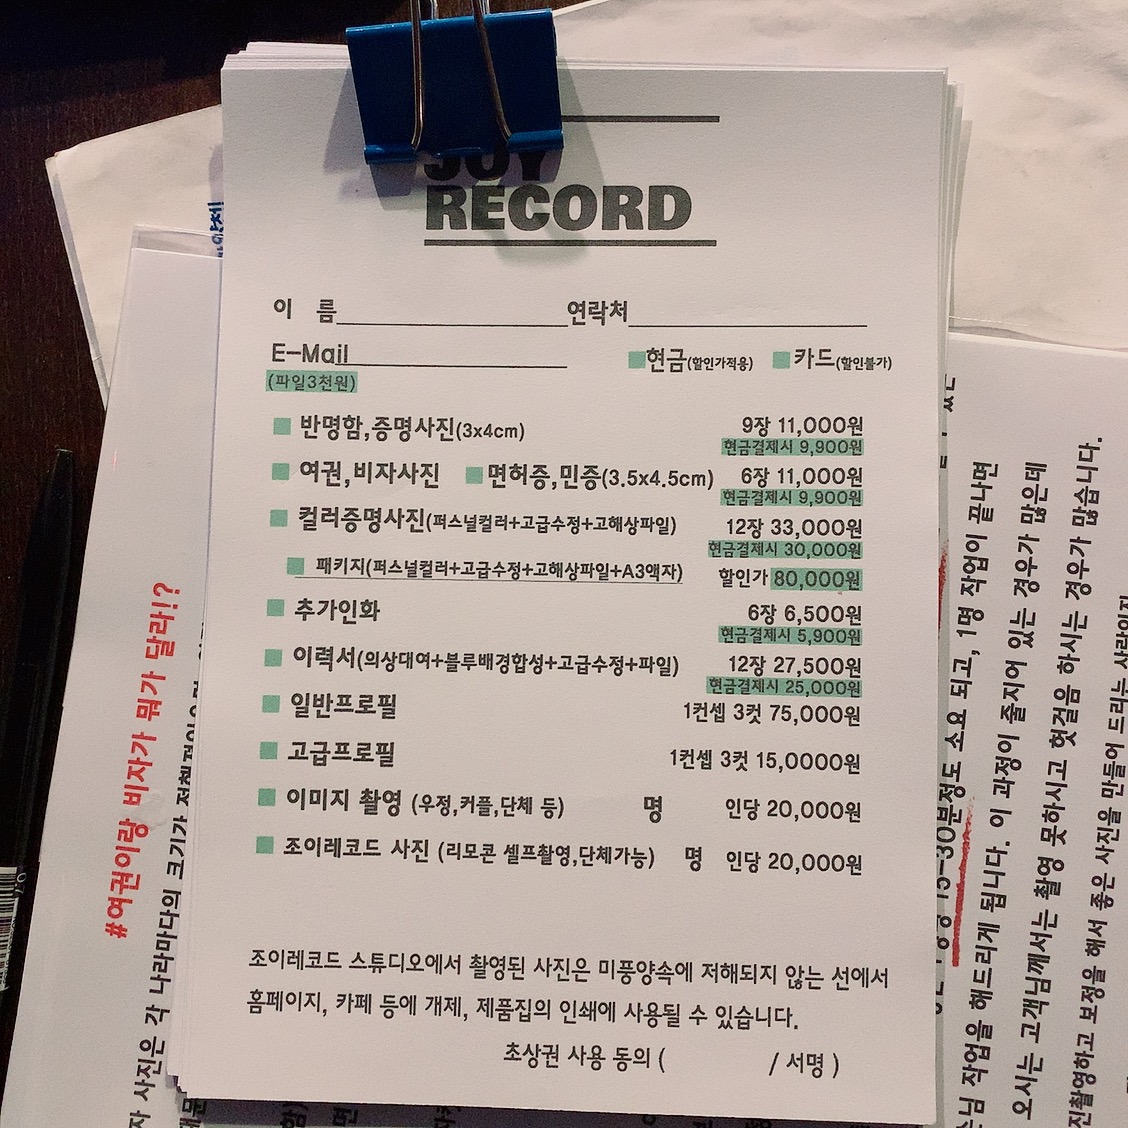 JOY
RECORD
이 름 연락처
E-Mail ■현금(할인가적용) ■카드(할인불가)
(파일3천원)
■ 반명함,증명사진(3x4cm) 9장 11,000원
현금결제시 9,900원
■ 여권,비자사진 ■면허증,민증(3.5x4.5cm) 6장 11,000원
현금결제시 9,900원
■ 컬러증명사진(퍼스널컬러+고급수정+고해상파일) 12장 33,000원
현금결제시 30,000원
■ 패키지(퍼스널컬러+고급수정+고해상파일+A3액자) 할인가 80,000원
■ 추가인화 6장 6,500원
현금결제시 5,900원
■ 이력서(의상대여+블루배경합성+고급수정+파일) 12장 27,500원
현금결제시 25,000원
■ 일반프로필 1컨셉 3컷 75,000원
■ 고급프로필 1컨셉 3컷 15,0000원
■ 이미지 촬영 (우정,커플,단체 등) 명 인당 20,000원
■ 조이레코드 사진 (리모콘 셀프촬영,단체가능) 명 인당 20,000원
조이레코드 스튜디오에서 촬영된 사진은 미풍양속에 저해되지 않는 선에서
홈페이지, 카페 등에 개제, 제품집의 인쇄에 사용될 수 있습니다.
초상권 사용 동의 ( / 서명 )
#여권이랑 비자가 뭐가 달라!?
자 사진은 각 나라마다의 크기가
15~30분정도 소요 되고, 1명 작업이 끝나면
작업을 해드리게 됩니다. 이 과정이 줄지어 있는 경우가 많은데
오시는 고객님께서는 촬영 못하시고 헛걸음 하시는 경우가 많습니다.
진촬영하고 보정을 해서 좋은 사진을 만들어 드리는